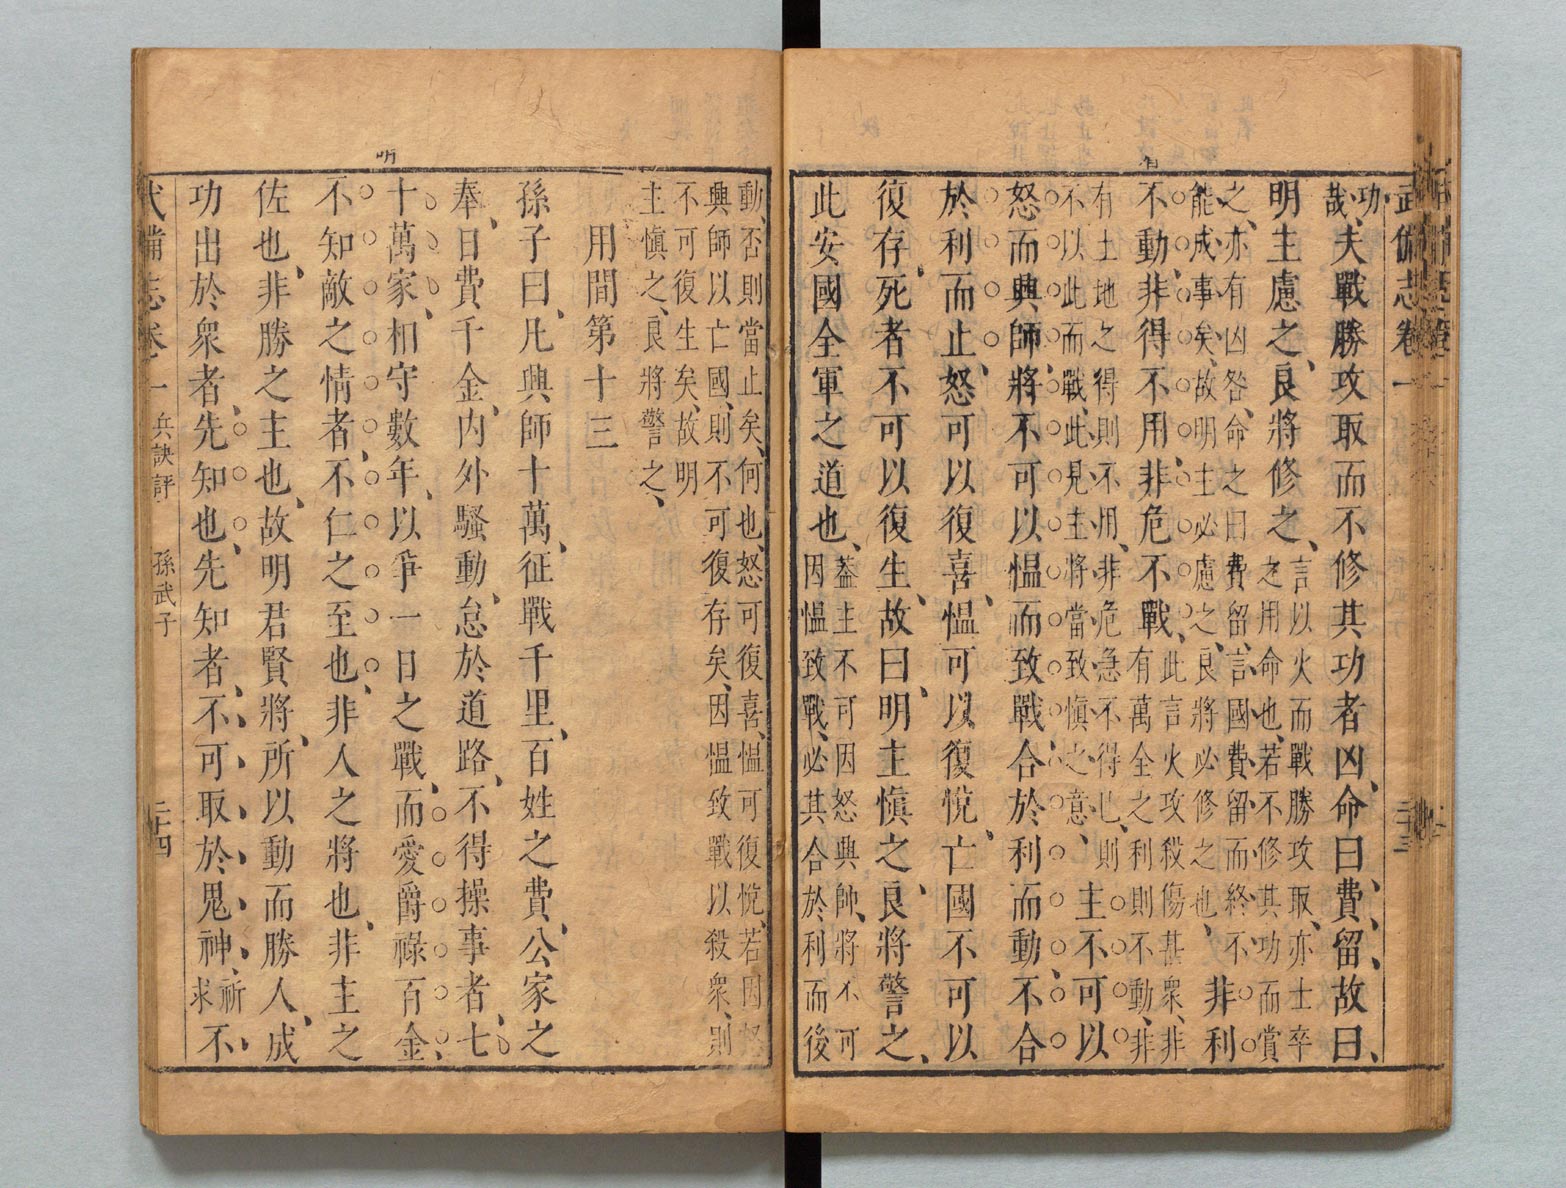 武備志卷一 二十三
功
哉、夫戰勝攻取而不修其功者凶、命曰費、留、故曰、
明主慮之、良將修之、
言以火而戰勝攻取、亦士卒
之用命也、若不修其功而賞
之、亦有凶咎、命之曰費留、言國費留而終不
能成事矣、故明主必慮之、良將必修之也、
非利
不動、非得不用、非危不戰、
此言火攻殺傷甚衆、非
有萬全之利則不動、非
有土地之得則不用、非危急不得已、則
不以此而戰、此見主將當致愼之意、
主不可以
怒而興師、將不可以慍而致戰、合於利而動不合
於利而止、怒可以復喜、慍可以復悅、亡國不可以
復存、死者不可以復生、故曰、明主愼之、良將警之、
此安國全軍之道也、
蓋主不可因怒興師、將不可
因慍致戰、必其合於利而後
動、否則當止矣、何也、怒可復喜、慍可復悅、若因怒
興師以亡國、則不可復存矣、因慍致戰以殺衆、則
不可復生矣、故明
主愼之、良將警之、
用間第十三
孫子曰、凡興師十萬、征戰千里、百姓之費、公家之
奉、日費千金、內外騷動、怠於道路、不得操事者、七
十萬家、相守數年、以爭一日之戰、而愛爵祿百金、
不知敵之情者、不仁之至也、非人之將也、非主之
佐也、非勝之主也、故明君賢將、所以動而勝人、成
功出於衆者、先知也、先知者、不可取於鬼神、
祈
求
不
武備志卷一 兵訣評 孫武子 二十四